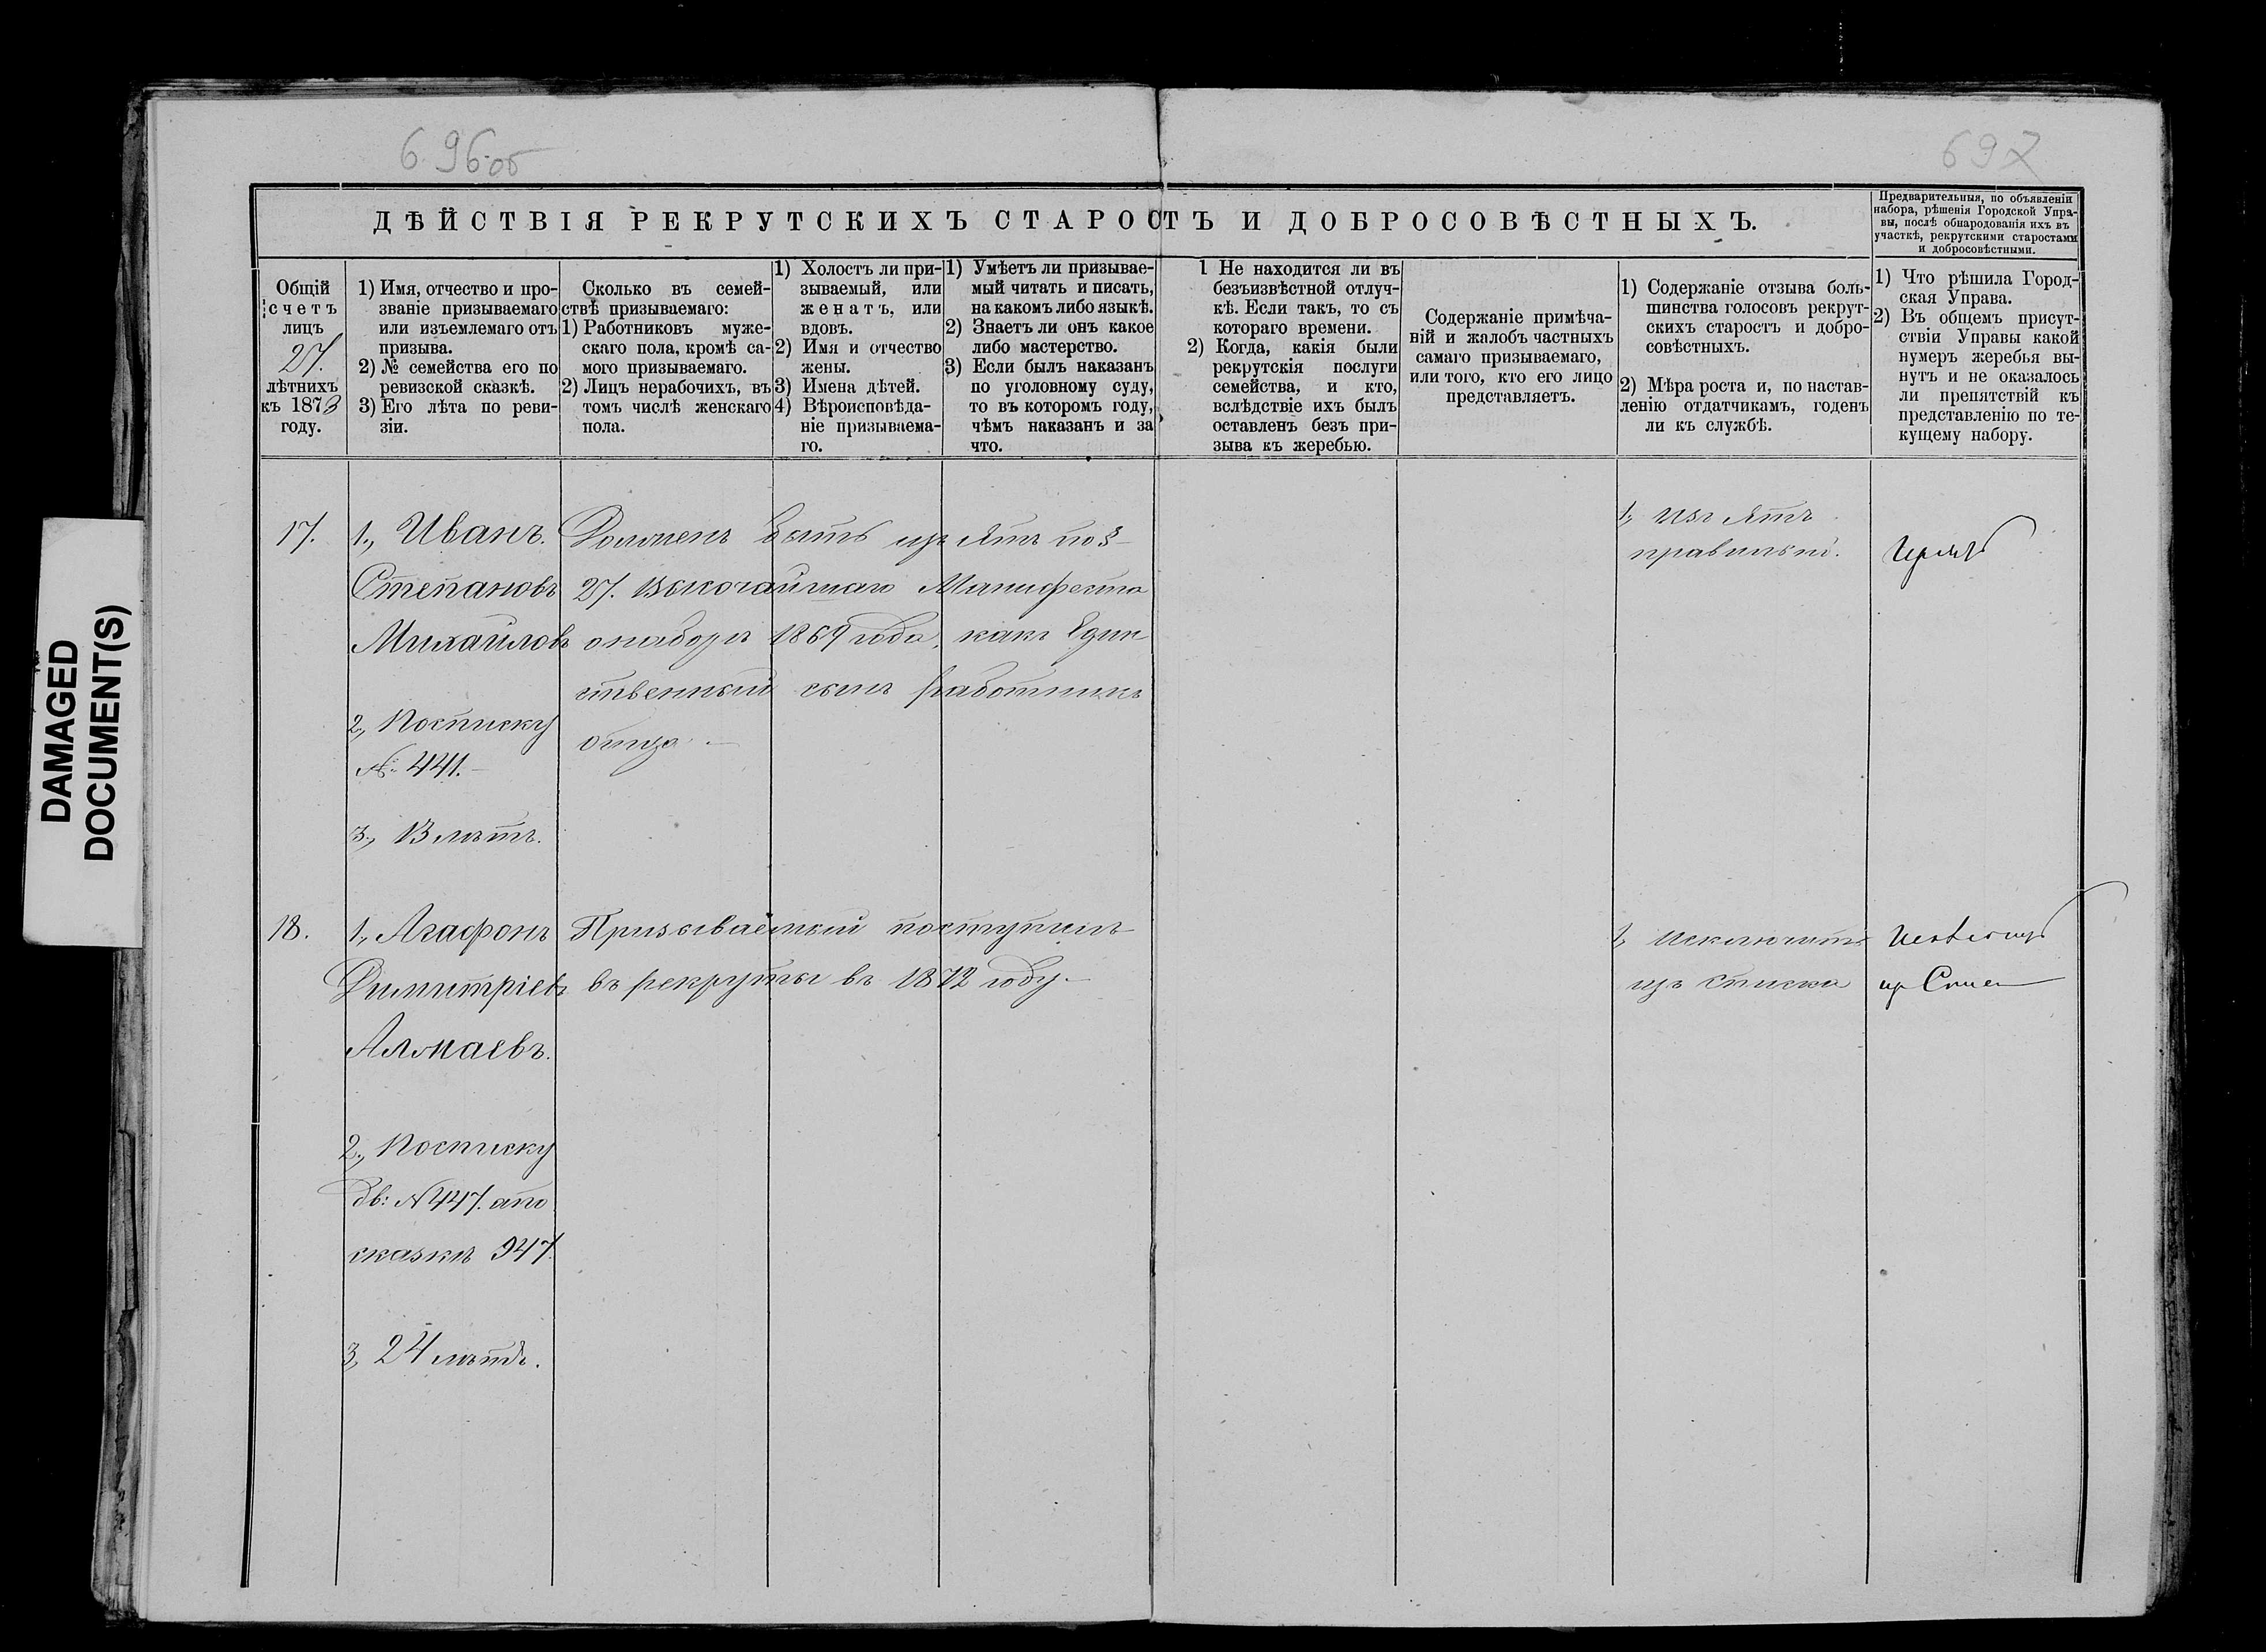 696об
697
DAMAGED
DOCUMENT(S)
ДѢЙСТВІЯ РЕКРУТСКИХЪ СТАРОСТЪ И ДОБРОСОВѢСТНЫХЪ.
Предварительныя, по объявленіи
набора, рѣшенія Городской Упра-
вы, послѣ обнародованія ихъ въ
участкѣ, рекрутскими старостами
и добросовѣстными.
Общій
счетъ
лицъ
27.
лѣтнихъ
къ 1873
году.
1) Имя, отчество и про-
званіе призываемаго
или изъемлемаго отъ
призыва.
2) № семейства его по
ревизской сказкѣ.
3) Его лѣта по реви-
зіи.
Сколько въ семей-
ствѣ призываемаго:
1) Работниковъ муже-
скаго пола, кромѣ са-
мого призываемаго.
2) Лицъ нерабочихъ, въ
томъ числѣ женскаго
пола.
1) Холостъ ли при-
зываемый, или
женатъ, или
вдовъ.
2) Имя и отчество
жены.
3) Имена дѣтей.
4) Вѣроисповѣда-
ніе призываема-
го.
1) Умѣетъ ли призывае-
мый читать и писать,
на какомъ либо языкѣ.
2) Знаетъ ли онъ какое
либо мастерство.
3) Если былъ наказанъ
по уголовному суду,
то въ которомъ году,
чѣмъ наказанъ и за
что.
1 Не находится ли въ
безъизвѣстной отлуч-
кѣ. Если такъ, то съ
котораго времени.
2) Когда, какія были
рекрутскія послуги
семейства, и кто,
вслѣдствіе ихъ былъ
оставленъ безъ при-
зыва къ жеребью.
Содержаніе примѣча-
ній и жалобъ частныхъ
самаго призываемаго,
или того, кто его лицо
представляетъ.
1) Содержаніе отзыва боль-
шинства голосовъ рекрут-
скихъ старостъ и добро-
совѣстныхъ.
2) Мѣра роста и, по настав-
ленію отдатчикамъ, годенъ
ли къ службѣ.
1) Что рѣшила Город-
ская Управа.
2) Въ общемъ присут-
ствіи Управы какой
нумеръ жеребья вы-
нутъ и не оказалось
ли препятствій къ
представленію по те-
кущему набору.
17.
1., Иванъ
Степановъ
Михайловъ
2., Посписку
№ 441.
3., 13 лѣтъ.
Долженъ быть изъятъ по §
27. Высочайшаго Манифеста
о наборѣ 1869 года, какъ Един
ственный сынъ работникъ
отца.
1., Изъятъ
правильно.
18.
1., Агафонъ
Димитріевъ
Алмаевъ.
2., Посписку
дв: № 447. апо
сказкѣ 947.
3, 24 лѣтъ.
Призываемый поступилъ
въ рекруты въ 1872 году.
1, Исключить
изъ списка